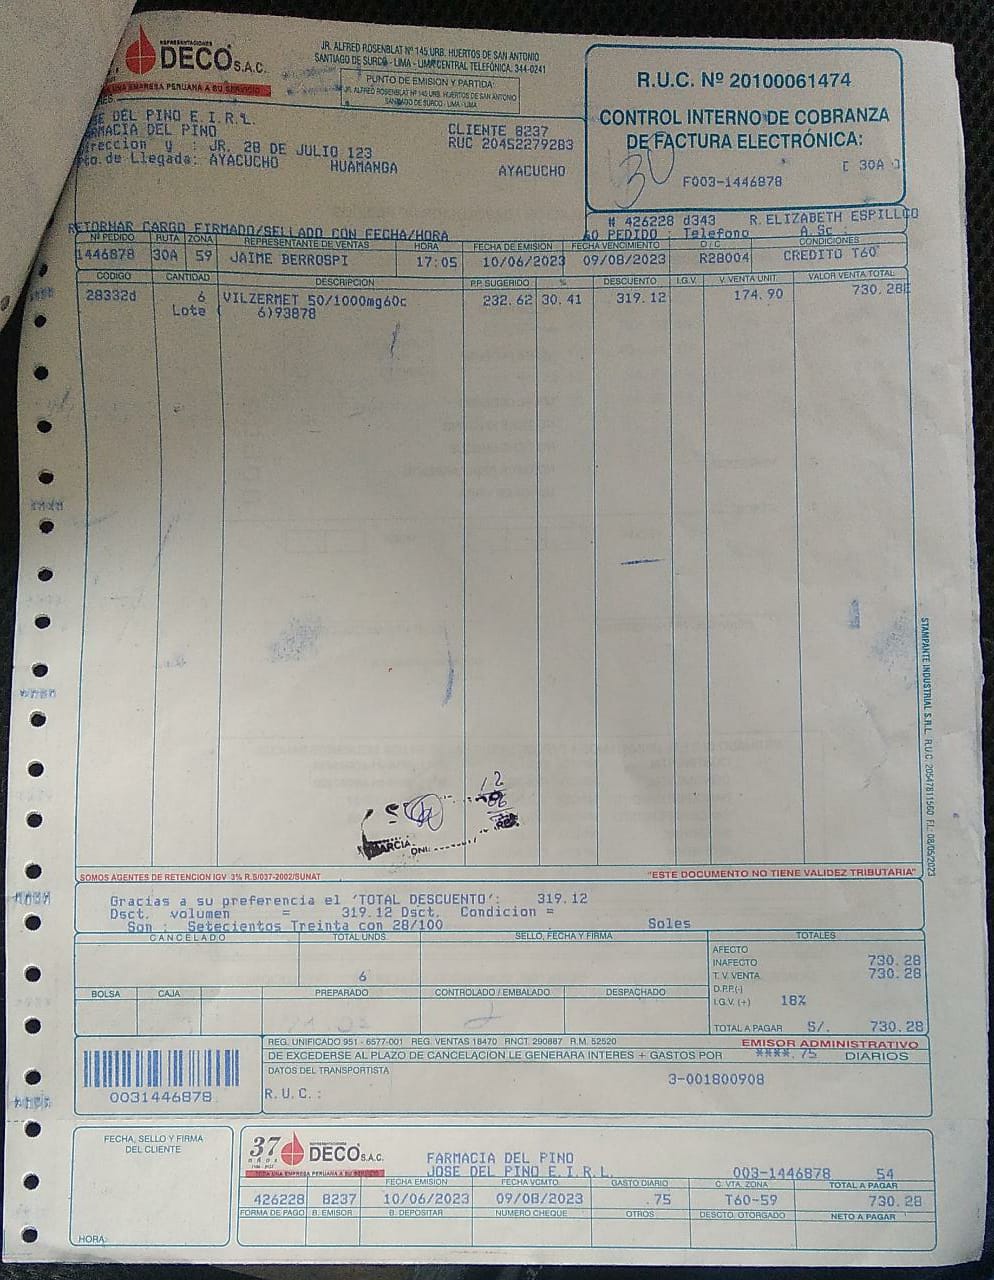 REPRESENTACIONES
DECO S.A.C.
UNA EMPRESA PERUANA A SU SERVICIO
JR. ALFRED ROSENBLAT Nº 145 URB. HUERTOS DE SAN ANTONIO
SANTIAGO DE SURCO - LIMA - LIMA CENTRAL TELEFÓNICA: 344-0241
PUNTO DE EMISION Y PARTIDA:
JR. ALFRED ROSENBLAT Nº 145 URB. HUERTOS DE SAN ANTONIO
SANTIAGO DE SURCO - LIMA - LIMA
R.U.C. Nº 20100061474
CONTROL INTERNO DE COBRANZA
DE FACTURA ELECTRÓNICA:
[ 30A ]
30
F003-1446878
DEL PINO E.I.R.L.
FARMACIA DEL PINO
CLIENTE 8237
Direccion y : JR. 28 DE JULIO 123
RUC 20452279283
Pto.de Llegada: AYACUCHO HUAMANGA AYACUCHO
# 426228 d343 R.ELIZABETH ESPILLCO
RETORNAR CARGO FIRMADO/SELLADO CON FECHA/HORA
AO PEDIDO : Telefono A.Sc :
Nº PEDIDO RUTA ZONA REPRESENTANTE DE VENTAS HORA FECHA DE EMISION FECHA VENCIMIENTO O / C CONDICIONES
1446878 30A 59 JAIME BERROSPI 17:05 10/06/2023 09/08/2023 R28004 CREDITO T60
CODIGO CANTIDAD DESCRIPCION P.P. SUGERIDO % DESCUENTO I.G.V. V. VENTA UNIT. VALOR VENTA TOTAL
28332d 6 VILZERMET 50/1000mg60c 232.62 30.41 319.12 174.90 730.28
Lote ( 6)93878
STAMPANTE INDUSTRIAL S.R.L. R.U.C. 20547811560 F.I.: 08/05/2023
12
06
GARCIA
DNI:
SOMOS AGENTES DE RETENCION IGV 3% R.S/037-2002/SUNAT
"ESTE DOCUMENTO NO TIENE VALIDEZ TRIBUTARIA"
Gracias a su preferencia el 'TOTAL DESCUENTO': 319.12
Dsct. volumen = 319.12 Dsct. Condicion =
Son : Setecientos Treinta con 28/100 Soles
CANCELADO TOTAL UNDS. SELLO, FECHA Y FIRMA TOTALES
6
AFECTO
INAFECTO 730.28
T. V. VENTA 730.28
D.P.P.(-)
I.G.V. (+) 18%
TOTAL A PAGAR S/. 730.28
BOLSA CAJA PREPARADO CONTROLADO / EMBALADO DESPACHADO
REG. UNIFICADO 951 - 6577-001 REG. VENTAS 18470 RNCT. 290887 R.M. 52520
EMISOR ADMINISTRATIVO
DE EXCEDERSE AL PLAZO DE CANCELACION LE GENERARA INTERES + GASTOS POR ****.75 DIARIOS
DATOS DEL TRANSPORTISTA
3-001800908
R.U.C.:
0031446878
FECHA, SELLO Y FIRMA
DEL CLIENTE
HORA:
37
AÑOS
REPRESENTACIONES
DECO S.A.C.
TODA UNA EMPRESA PERUANA A SU SERVICIO
FARMACIA DEL PINO
JOSE DEL PINO E.I.R.L. 003-1446878 54
FECHA EMISION FECHA VCMTO. GASTO DIARIO C. VTA. ZONA TOTAL A PAGAR
426228 8237 10/06/2023 09/08/2023 .75 T60-59 730.28
FORMA DE PAGO B. EMISOR B. DEPOSITAR NUMERO CHEQUE OTROS DESCTO. OTORGADO NETO A PAGAR